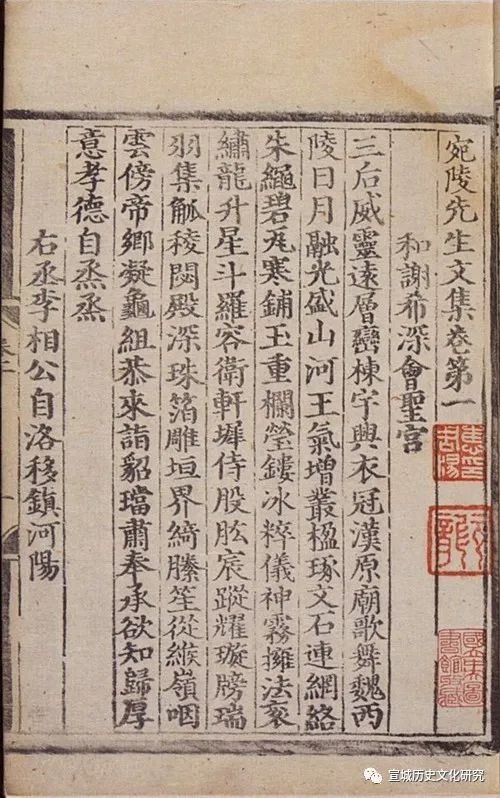 宛陵先生文集卷第一
和謝希深會聖宮
三后威靈遠層巒棟宇興衣冠漢原廟歌舞魏西
陵日月融光盛山河王氣增叢楹琢文石連網絡
朱繩碧瓦寒鋪玉重欄瑩鏤冰粹儀神霧擁法衮
繡龍升星斗羅容衛軒墀侍股肱宸蹤耀璇牓瑞
羽集觚稜閟殿深珠箔雕垣界綺縢笙從緱嶺咽
雲傍帝鄉凝龜組恭來詣貂璫肅奉承欲知歸厚
意孝德自烝烝
右丞李相公自洛移鎮河陽
宣城历史文化研究